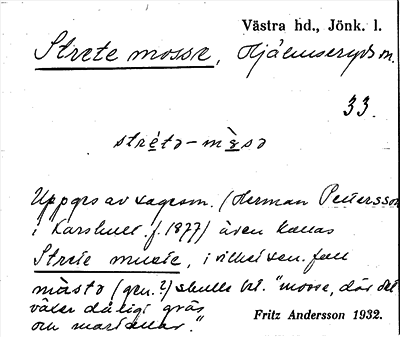 Västra hd., Jönk. l.
Strete mosse, Hjälmseryds sn.
33.
strétə-mὲsə
Uppges av sagesm. (Herman Pettersson
i Karshult f. 1877) även kallas
Strete , i vilket sen. fall
(gen.?) skulle bet. "mosse, där det
växer dåligt gräs
och marken är."
Fritz Andersson 1932.